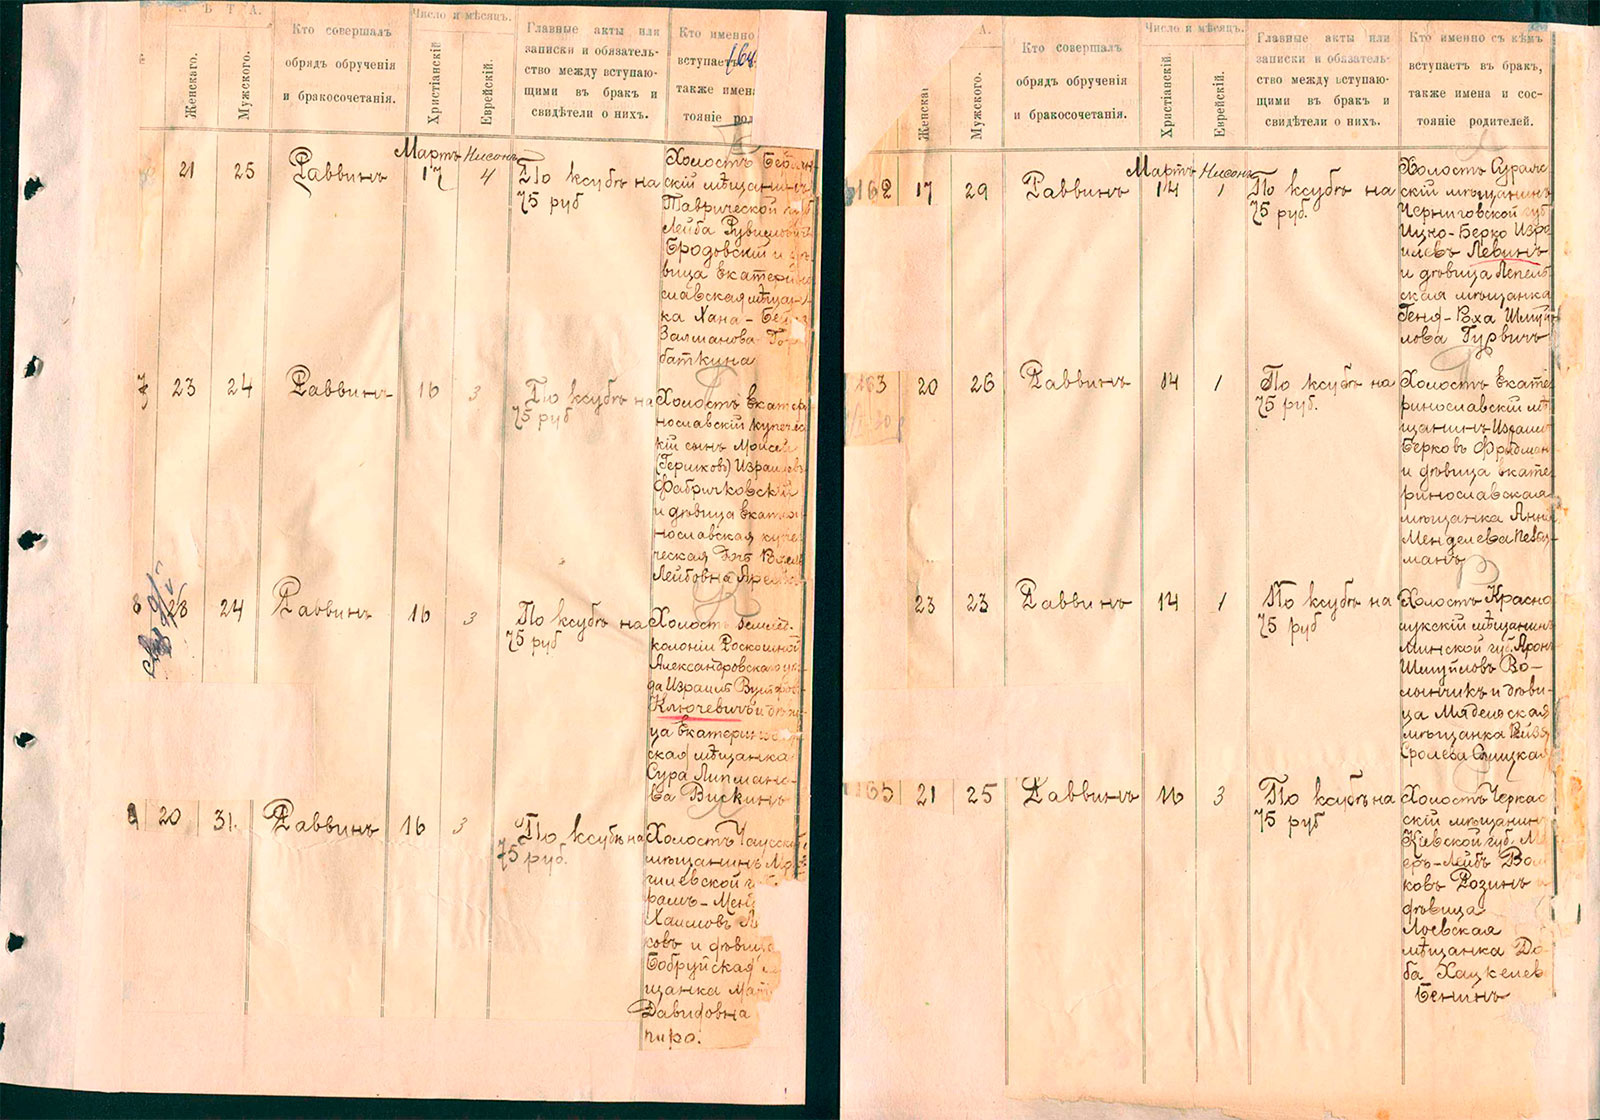 Ѣ Т А.
Женскаго.
Мужского.
Кто совершалъ
обрядъ обрученія
и бракосочетанія.
Число и мѣсяцъ.
Христіанскій
Еврейскій.
Главные акты или
записки и обязатель-
ство между вступаю-
щими въ бракъ и
свидѣтели о нихъ.
Кто именно
вступаетъ
также имена
тояніе род
21
25
Раввинъ
Мартъ
17
Нисонъ
4
По ксубѣ на
75 руб
Холостъ
скій мѣщанинъ
Таврической
Лейба Рувимовъ
Бродовскій и дѣ-
вица Екатерино
славская мѣщан
ка Хана-
Залманова Гор
баткина
23
24
Раввинъ
16
3
По ксубѣ на
75 руб
Холостъ Екатери
нославскій купечес
кій сынъ Мойсей
(Гершковъ) Израилевъ
Фабричковскій
и дѣвица Екатери
нославская купе
ческая
Лейбовна
8
23
24
Раввинъ
16
3
По ксубѣ на
75 руб
Холостъ
колоніи Роскошной
Александровскаго уѣз
да Израиль
Ключевичъ и дѣви
ца Екатеринослав
ская мѣщанка
Сура Липмано-
ва Вискинъ
9
20
31.
Раввинъ
16
3
По ксубѣ на
75 руб.
Холостъ Чаусскій
мѣщанинъ Мо
гилевской г
Хаимовъ
ковъ и дѣвица
Бобруйская
щанка
Давидовна
пиро.
А.
Женскаг
Мужского.
Кто совершалъ
обрядъ обрученія
и бракосочетанія.
Число и мѣсяцъ.
Христіанскій.
Еврейскій.
Главные акты или
записки и обязатель-
ство между вступаю-
щими въ бракъ и
свидѣтели о нихъ.
Кто именно съ кѣмъ
вступаетъ въ бракъ,
также имена и сос-
тояніе родителей.
162
17
29
Раввинъ
Мартъ
14
Нисонъ
1
По ксубѣ на
75 руб.
Холостъ Суражс
скій мѣщанинъ
Черниговской губ
Ицко-Берко Изра
илевъ Левинъ
и дѣвица Лепель
ская мѣщанка
Геня-Роха Шмуй
лова Гурвичъ
163
20
26
Раввинъ
14
1
По ксубѣ на
75 руб.
Холостъ Екате
ринославскій мѣ
щанинъ Израиль
Берковъ Фридман
и дѣвица Екате
ринославская
мѣщанка Анна
Менделева
манъ
23
23
Раввинъ
14
1
По ксубѣ на
75 руб
Холостъ Красно
лукскій мѣщанинъ
Минской губ. Аронъ
Шмуйловъ Во-
лынчикъ и дѣви-
ца Мядельская
мѣщанка
Сролева Слуцкая
165
21
25
Раввинъ
16
3
По ксубѣ на
75 руб
Холостъ Черкас
скій мѣщанинъ
Кіевской губ. Ме
еръ-Лейбъ Вол
ковъ Розинъ
дѣвица
Лоевская
мѣщанка До-
ба Хацкелев
Бенинъ